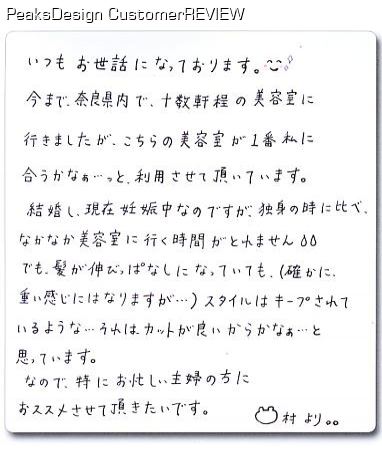 PeaksDesign CustomerREVIEW
いつも お世話になっております。
今まで、奈良県内で、十数軒程の美容室に
行きましたが、こちらの美容室が1番私に
合うかなぁ…っと、利用させて頂いています。
結婚し、現在妊娠中なのですが、独身の時に比べ、
なかなか美容室に行く時間がとれません
でも、髪が伸びっぱなしになっていても、(確かに、
重い感じにはなりますが…)スタイルはキープされて
いるような…それはカットが良いからかなぁ…と
思っています。
なので、特にお忙しい主婦の方に
おススメさせて頂きたいです。
村より。。